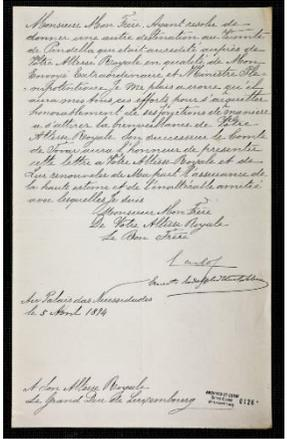 Monsieur Mon Frère. Ayant résolu de
donner une autre destination au Vicomte
de Pindella qui était accrédité auprès de
Votre Altesse Royale en qualité de Mon
Envoyé Extraordinaire et Ministre Plé-
nipotentiaire, Je me plais à croire qu'il
aura mis tous ses efforts pour s'acquitter
honorablement de ses fonctions de manière
à s'attirer la bienveillance de Votre
Altesse Royale. Son successeur le Comte
de Tovar aura l'honneur de présenter
cette lettre à Votre Altesse Royale et de
Lui renouveler de Ma part l'assurance de
la haute estime et de l'inaltérable amitié
avec lesquelles Je suis
Monsieur Mon Frère
De Votre Altesse Royale
Le Bon Frère
Carlos
Au Palais das Necessidades
le 5 Avril 1894
A Son Altesse Royale
Le Grand Duc de Luxembourg
0126